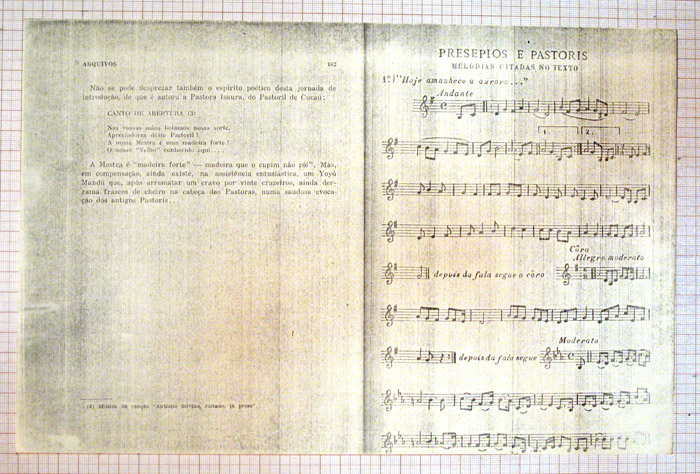 ARQUIVOS 162
Não se pode desprezar também o espírito poético desta jornada de
introdução, de que é autora a Pastora Isaura, do Pastoril de Cucaú:
CANTO DE ABERTURA (3)
Nas vossas mãos botamos nossa sorte,
Apreciadores dêste Pastoril!
A nossa Mestra é uma madeira forte!
O nosso "Velho" conhecido aqui...
A Mestra é "madeira forte" — madeira que o cupim não rói". Mas,
em compensação, ainda existe, na assistência entusiástica, um Yoyô
Mandú que, após arrematar um cravo por vinte cruzeiros, ainda der-
rama frascos de cheiro na cabeça das Pastoras, numa saudosa evoca-
ção dos antigos Pastoris.
Música da canção "Antônio Silvino,
PRESEPIOS E PASTORIS
MELODIAS CITADAS NO TEXTO
1º) "Hoje amanhece a aurora..."
Andante
Côro
Allegro moderato
depois da fala segue o côro
Moderato
depois da fala segue